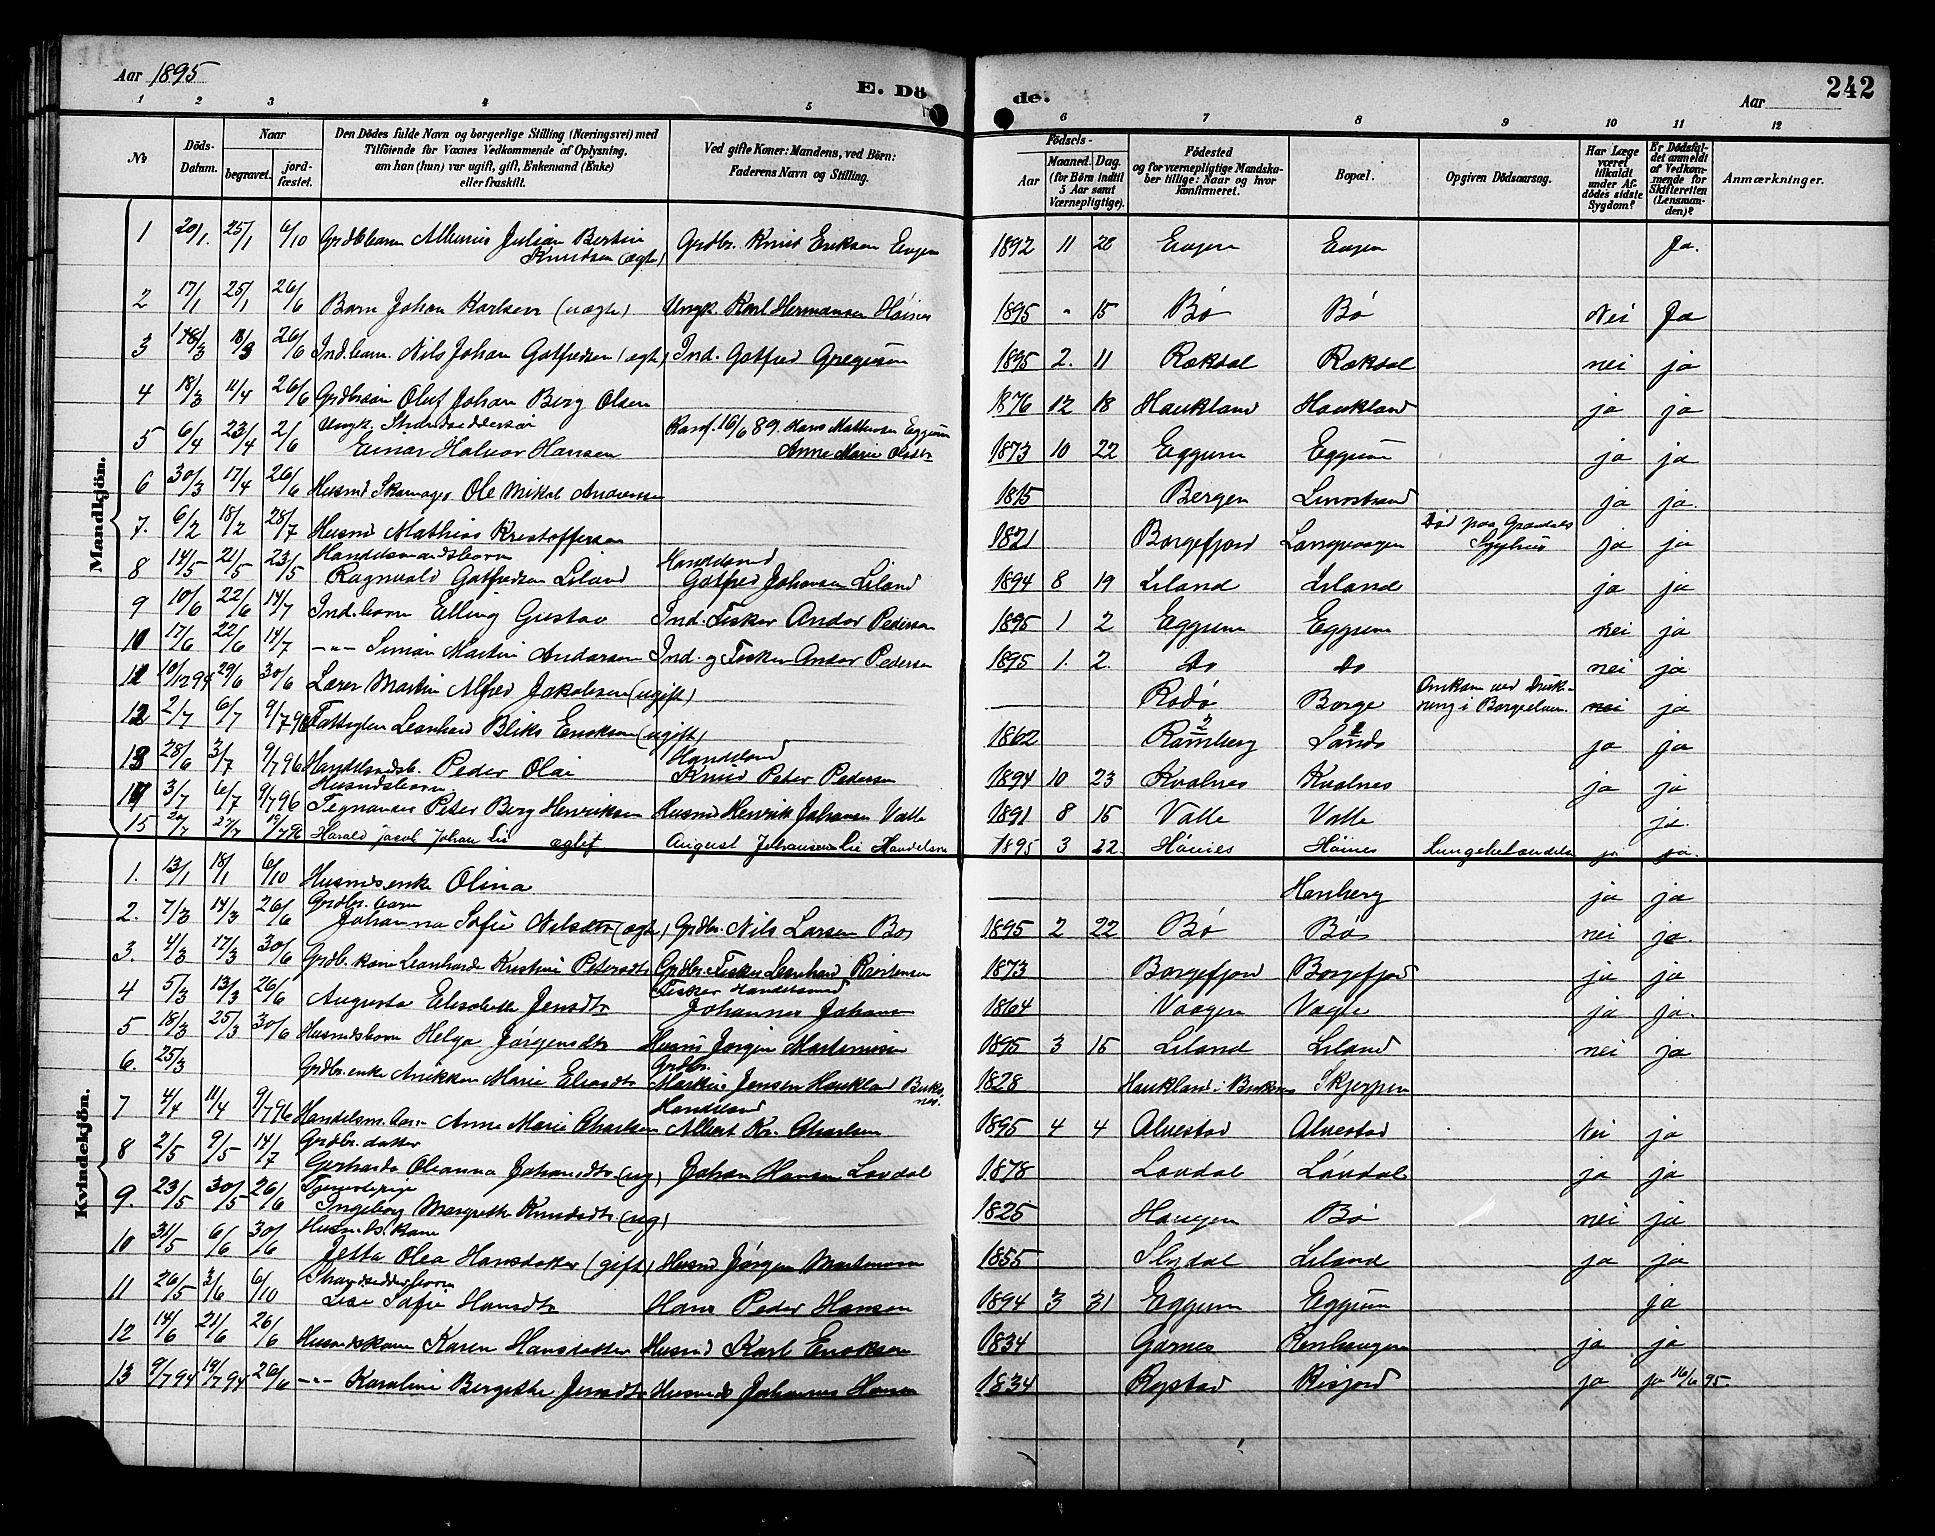 Aar 1895
E. Döde.
Aar
242
1 2 3 4 5 6 7 8 9 10 11 12
No
Döds-Datum.
Naar
begravet.
jordfæstet.
Den Dödes fulde Navn og borgerlige Stilling (Næringsvei) med
Tilföiende for Voxnes Vedkommende af Oplysning,
om han (hun) var ugift, gift, Enkemand (Enke)
eller fraskilt.
Ved gifte Koner: Mandens, ved Börn:
Faderens Navn og Stilling.
Födsels-
Aar
Maaned. Dag.
(for Börn indtil
5 Aar samt
Værnepligtige).
Födested
og for værnepligtige Mandska-
ber tillige: Naar og hvor
konfirmeret.
Bopæl.
Opgiven Dödsaarsag.
Har Læge
været
tilkaldt
under Af-
dödes sidste
Sygdom?
Er Dödsfal-
det anmeldt
af Vedkom-
mende for
Skifteretten
(Lensman-
den)?
Anmærkninger.
Mandkjön.
1 20/1. 25/1 6/10 Grdb.barn Albinus Julian Bertin Knudsen (ægte) Grdbr. Knud Eriksen 1892 11 28 Ja.
2 17/1 25/1 26/6 Barn Johan Karlsen (uægte) Ungk. Karl Hermansen Höines 1895 " 15 Bö Bö Nei Ja
3 18/3 26/6 Ind.barn Nils Johan Gotfredsen (ægte) Ind. Gotfred Gregusen 1895 2. 11 Rækdal Rækdal nei ja
4 18/3 11/4 26/6 Grdbrsön Oluf Johan Berg Olsen 1876 12 18 Haukland Haukland ja ja
5 6/4 23/4 2/6 Ungk. Strandsiddersön Einar Halvor Hansen Konf. 16/6 89. Hans Mathisen Eggum Anne Marie Olsdtr 1873 10 22 Eggum Eggum ja ja
6 30/3 17/4 26/6 Husmd Skomager Ole Mikal Andersen 1815 Bergen Limstrand ja ja.
7. 6/2 18/2 28/7 Husmd Mathias Kristoffersen 1821 Borgefjord Langvaagen Död paa Gravdals Sygehus ja ja
8 14/5 21/5 23/5 Handelsmandsbarn Ragnvald Gotfredsen Liland Handelsmd Gotfred Johansen Liland 1894 8 19 Liland Liland ja ja
9 10/6 22/6 14/7 Ind.barn Elling Gustav Ind. Fisker Andor Pedersen 1895 1 2 Eggum Eggum nei ja
10 17/6 22/6 14/7 -"- Simon Martin Andorsen Ind. og Fisker Andor Pedersen 1895 1. 2. Do Do nei ja
11 10/12 94 29/6 30/6 Lærer Martin Alfred Jakobsen (ugift) Rödö Borge Omkom ved Drukning i Borgeelven. nei ja
12 2/7 6/7 9/7 96 Fattiglem Leonhard Bliks Eriksen (ugift) 1862 Ramberg Sands ja ja
13 28/6 3/7 9/7 96 Handelsmdsb. Peder Olai Handelsmd Knud Peter Pedersen 1894 10 23 Kvalnes Kvalnes ja ja
14 3/7 6/7 9/7 96 Husmdsbarn Tegnander Peter Berg Henriksen Husmd Henrik Johansen Valle 1891 8 15 Valle Valle ja.
15 27/7 19/7 96 Harald Jacob Johan Lie ægtef. August Johansen Lie Handelsm 1895 3 22. Höines Höines Lungebetændelse ja ja.
Kvindekjön.
1. 13/1 18/1 6/10 Husmdsenke Olina Hernberg ja ja
2. 7/3 14/3 26/6 Grdbr. barn Johanna Sofie Nilsdtr (ægte) Grdbr. Nils Larsen Bö 1895 2 22 Bö Bö nei ja.
3. 4/3 17/3 30/6 Grdb. kone Leonharde Kristine Petersdtr Grdbr. Fisker Leonhard 1873 Borgefjord Borgefjord ja ja
4 5/3 13/3 26/6 Augusta Elisabeth Jensdtr Fisker Handelsmd Johannes Johansen 1864 Vaagen Vagle ja ja.
5 18/3 25/3 30/6 Husmdsbarn Helga Jörgensdtr Husmd Jörgen Martinusen 1895 3 15 Liland Liland nei ja
6. 25/3 Grdbr. enke Anikken Marie Eliasdtr Grdbr. Martin Jensen Haukland Buksnes 1828 Haukland i Buksnes Skjerpen
7 4/4 11/4 9/7 96 Handelsm. barn Anne Marie Charlsen Handelsmd Albert Kr. Charlsen 1895 4 4 Alvestad Alvestad Nei ja
8 2/5 9/5 14/7 Grdbr. datter Gerharda Oleanna Johansdtr (ug) Johan Hansen Lovdal 1878 Lovdal Lövdal ja ja
9. 23/5 30/5 26/6 Tjenestepige Ingeborg Margrethe Knudsdtr (ug) 1825 Haugen Bö nei ja
10 31/5 6/6 30/6 Husmds. kone Jetta Olea Hansdatter (gift) Husmd Jörgen Martinusen 1855 Slydal Liland ja ja
11 26/5 3/6 6/10 Strandsidderbarn Lise Sofie Hansdtr Hans Peder Hansen 1894 3 31 Eggum Eggum ja
12 14/6 21/6 26/6 Husmdskone Karen Hansdatter Husmd Karl Eriksen 1834 Garnes ja ja
13 9/7 94 14/7 94 26/6 -"- Karoline Bergitte Jensdtr Husmds Johannes Hansen 1834 Ropstad Risjord ja ja 16/6 95.